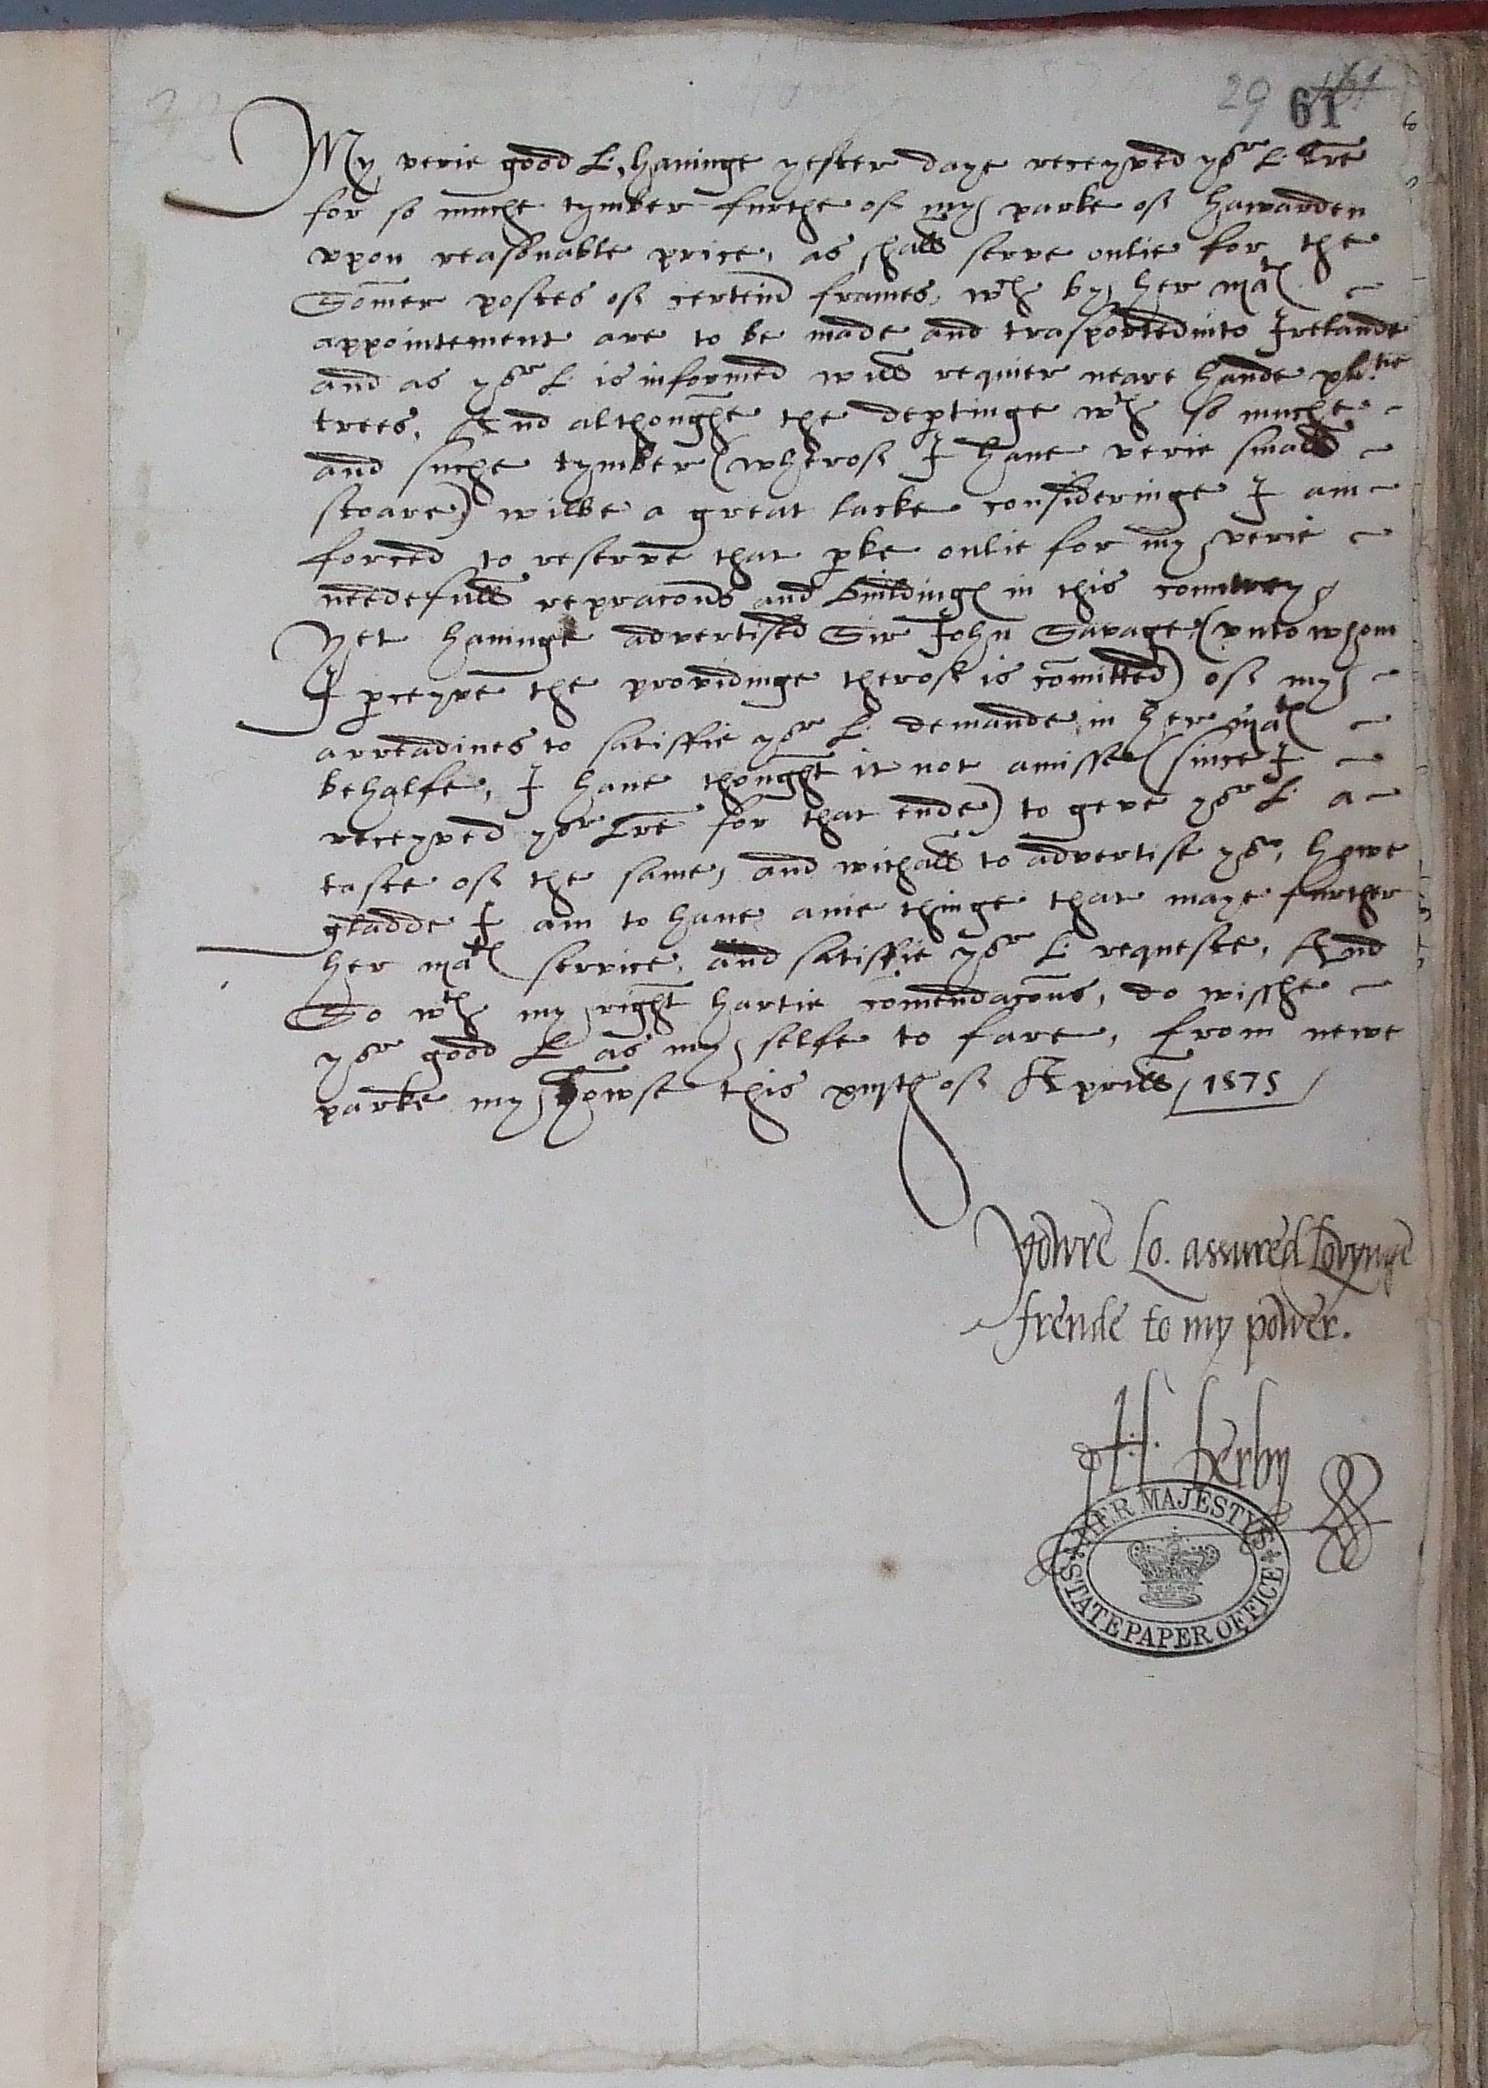 29 61
My verie good L. havinge yester daye receyved yor L. lre
for so muche tymber furthe of my parke of Hawarden
upon reasonable price, as shall serve onlie for the
Somer postes of certein frames, wch by her Mats
appointement are to be made and trasported into Irelande
and as yor L. is informed will requier neare hande
trees. And althoughe the dep'tinge wth so muche
and suche tymber (wherof I have verie small
stoare) wilbe a great lacke consideringe I am
forced to reserve that p'ke onlie for my verie
needefull repracons and buildings in this countrey
Yet havinge advertised Sir John Savage (unto whom
I p'ceyve the providinge therof is comitted) of my
arreadines to satisfie yor L. demande in her Mats
behalfe, I have thought it not amisse (since I
receyved yor lre for that ende) to geve yor L. a
taste of the same, and withall to advertise yor, howe
gladde I am to have anie thinge that maye further
her Mats service, and satisfie yor L. requeste, And
So wth my right hartie comendacons, do wisshe
yor good L. as my selfe to fare, from newe
parke my howse this of Aprill / 1575 /
yowre Lo. assured Lovynge
frende to my power.
H. Derby
HER MAJESTYS
STATE PAPER OFFICE